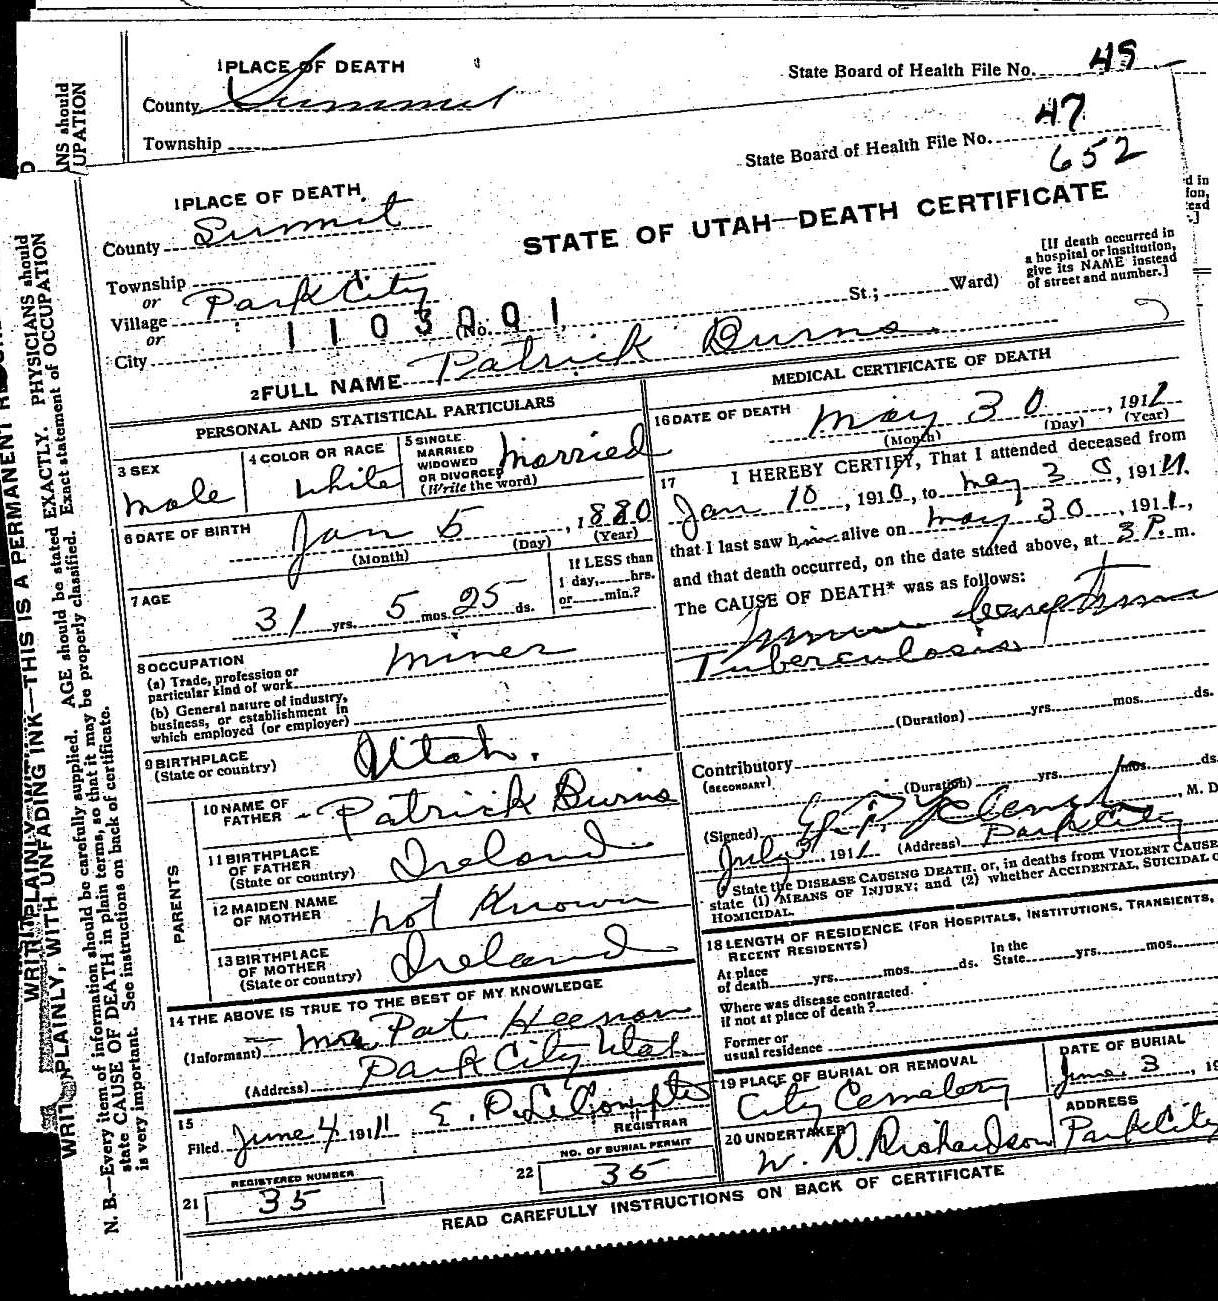 1 PLACE OF DEATH
County Summit
Township
State Board of Health File No. 48
ANS should
UPATION
1 PLACE OF DEATH
County Summit
Township
or
Village Park City
or
City
1103001
(No.
St.; Ward)
State Board of Health File No. 47
652
STATE OF UTAH—DEATH CERTIFICATE
[If death occurred in
a hospital or institution,
give its NAME instead
of street and number.]
2 FULL NAME Patrick Burns
PERSONAL AND STATISTICAL PARTICULARS
3 SEX
Male
4 COLOR OR RACE
White
5 SINGLE
MARRIED
WIDOWED
OR DIVORCED
(Write the word)
Married
6 DATE OF BIRTH
Jan 5, 1880
(Month) (Day) (Year)
7 AGE
31 yrs. 5 mos. 25 ds.
If LESS than
1 day, hrs.
or min.?
8 OCCUPATION
(a) Trade, profession or
particular kind of work
Miner
(b) General nature of industry,
business, or establishment in
which employed (or employer)
9 BIRTHPLACE
(State or country)
Utah.
PARENTS
10 NAME OF
FATHER
Patrick Burns
11 BIRTHPLACE
OF FATHER
(State or country)
Ireland
12 MAIDEN NAME
OF MOTHER
not Known
13 BIRTHPLACE
OF MOTHER
(State or country)
Ireland
14 THE ABOVE IS TRUE TO THE BEST OF MY KNOWLEDGE
(Informant) Mrs Pat Heenan
(Address) Park City Utah
15
Filed June 4 1911 E. P. LeCompte
REGISTRAR
REGISTERED NUMBER
21 35
NO. OF BURIAL PERMIT
22 35
MEDICAL CERTIFICATE OF DEATH
16 DATE OF DEATH
May 30, 1911
(Month) (Day) (Year)
17 I HEREBY CERTIFY, That I attended deceased from
Jan 10, 1910, to May 30, 1911.
that I last saw him alive on May 30, 1911,
and that death occurred, on the date stated above, at 3 P. m.
The CAUSE OF DEATH* was as follows:
Tuberculosis
(Duration) yrs. mos. ds.
Contributory
(SECONDARY)
(Duration) yrs. mos. ds.
(Signed) , M. D
July 3 1911 (Address) Park City
* State the DISEASE CAUSING DEATH, or, in deaths from VIOLENT CAUSE
state (1) MEANS OF INJURY; and (2) whether ACCIDENTAL, SUICIDAL O
HOMICIDAL.
18 LENGTH OF RESIDENCE (FOR HOSPITALS, INSTITUTIONS, TRANSIENTS,
RECENT RESIDENTS)
At place
of death yrs. mos. ds.
In the
State yrs. mos.
Where was disease contracted
if not at place of death?
Former or
usual residence
19 PLACE OF BURIAL OR REMOVAL
City Cemetery
DATE OF BURIAL
June 3, 19
20 UNDERTAKER
W. D. Richardson
ADDRESS
Park City
READ CAREFULLY INSTRUCTIONS ON BACK OF CERTIFICATE
WRITE PLAINLY, WITH UNFADING INK—THIS IS A PERMANENT R
N. B.—Every item of information should be carefully supplied. AGE should be stated EXACTLY. PHYSICIANS should
state CAUSE OF DEATH in plain terms, so that it may be properly classified. Exact statement of OCCUPATION
is very important. See instructions on back of certificate.